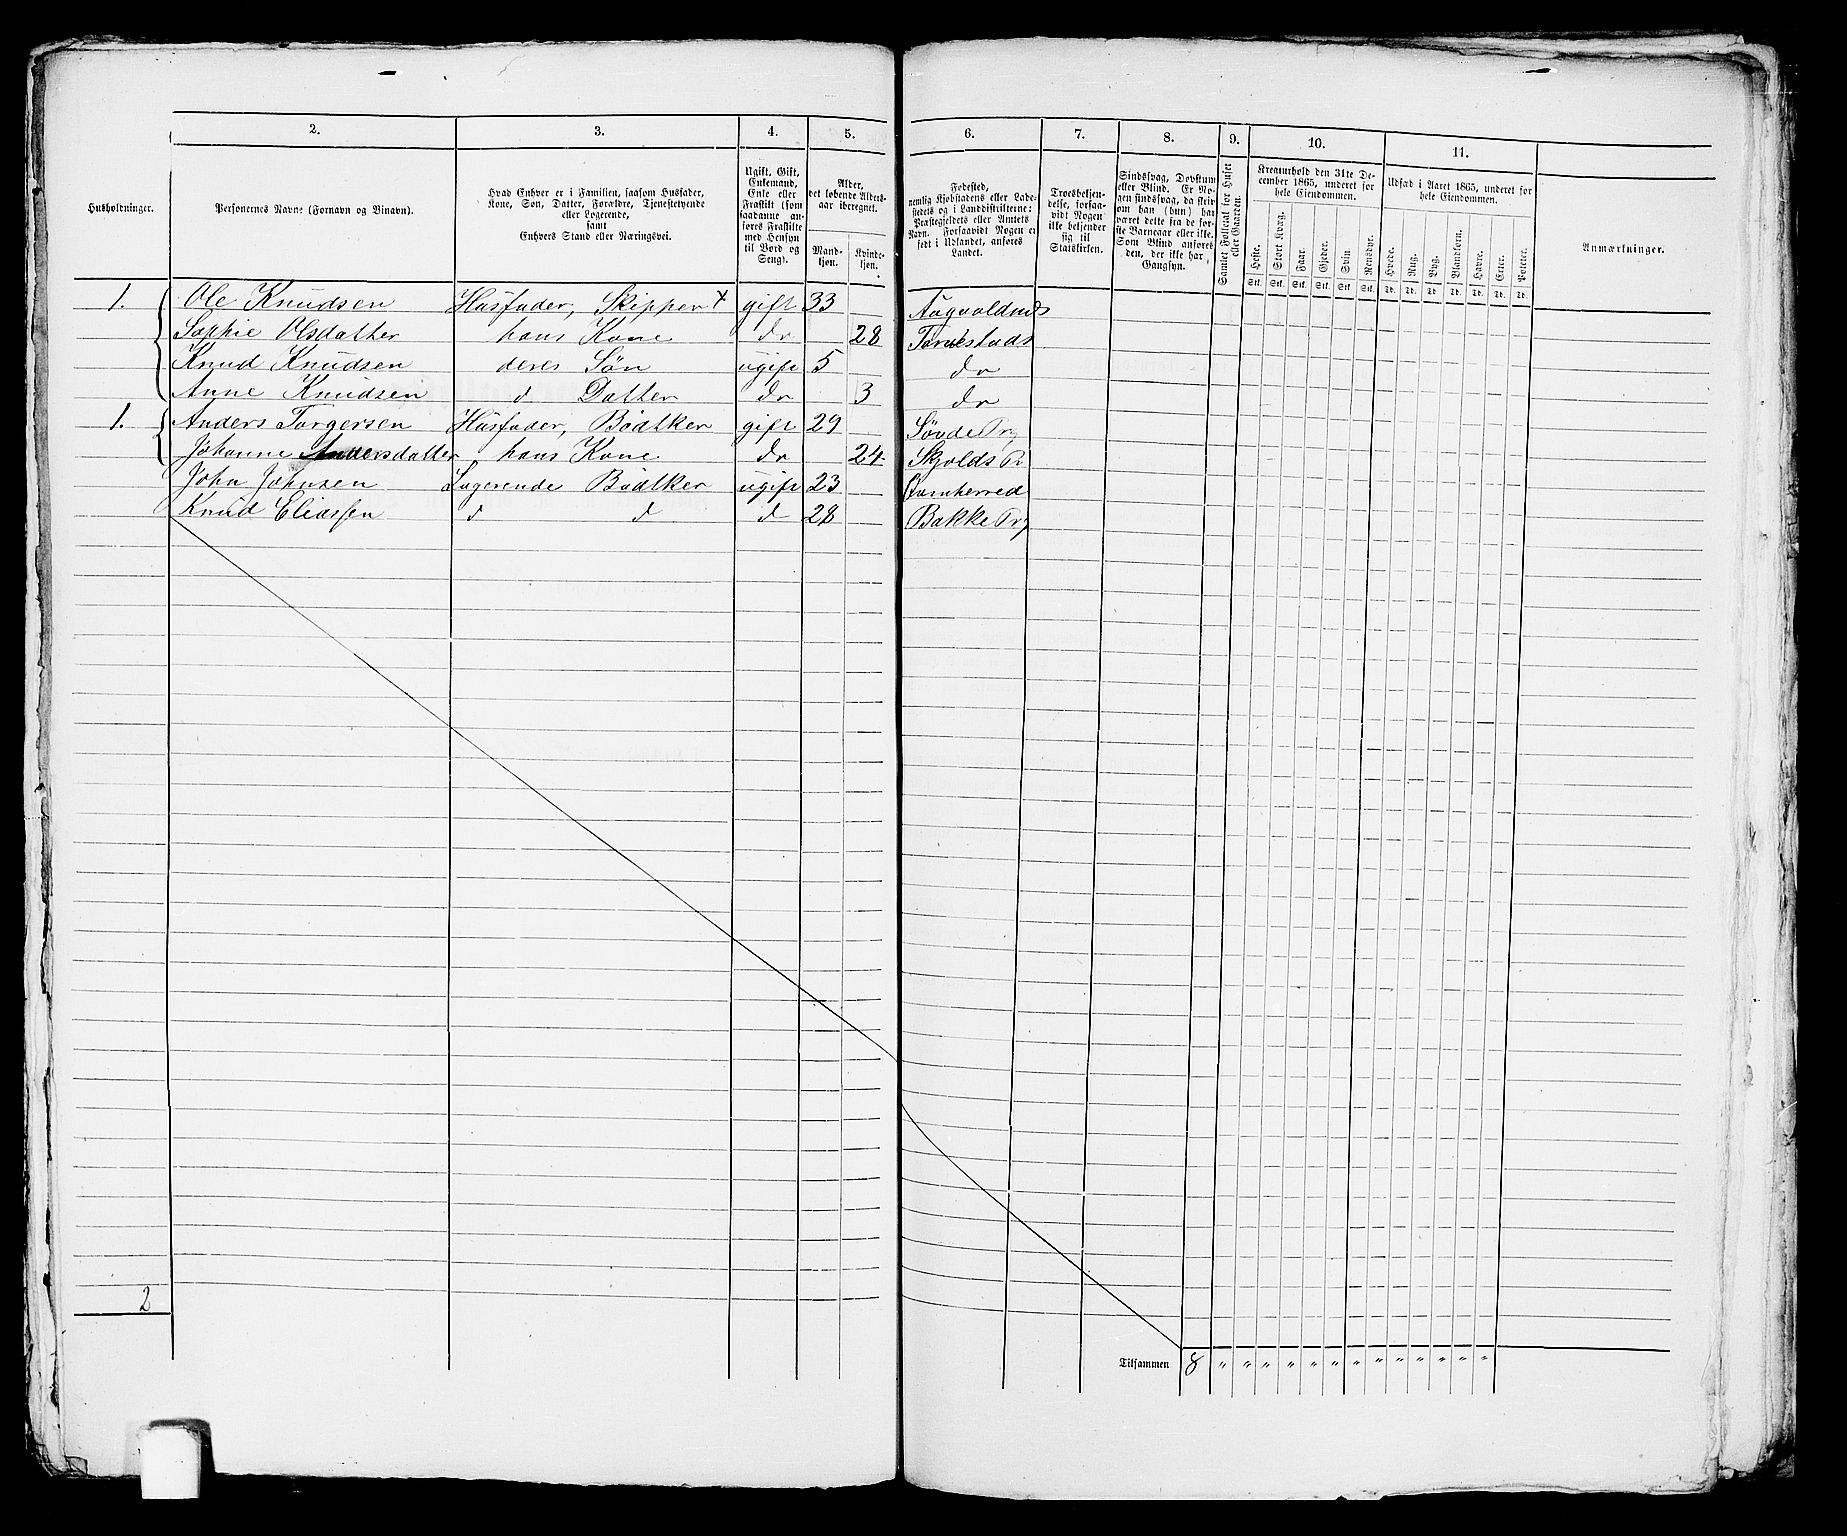 2. 3. 4. 5. 6. 7. 8. 9. 10. 11.
Husholdninger.
Personernes Navne (Fornavn og Binavn).
Hvad Enhver er i Familien, saasom Husfader,
Kone, Søn, Datter, Forældre, Tjenestetyende
eller Logerende,
samt
Enhvers Stand eller Næringsvei.
Ugift, Gift,
Enkemand,
Enke eller
Fraskilt (som
saadanne an-
føres Fraskilte
med Hensyn
til Bord og
Seng).
Alder,
det løbende Alders-
aar iberegnet.
Mand-
kjøn.
Kvinde-
kjøn.
Fødested,
nemlig Kjøbstadens eller Lade-
stedets og i Landdistrikterne:
Præstegjeldets eller Amtets
Navn. Forsaavidt Nogen er
født i Udlandet, anføres
Landet.
Troesbekjen-
delse, forsaa-
vidt Nogen
ikke bekjender
sig til
Statskirken.
Sindssvag, Døvstum
eller Blind. Er No-
gen sindssvag, da skriv
om han (hun) har
været dette fra de før-
ste Barneaar eller ikke.
Som Blind anføres
den, der ikke har
Gangsyn.
Samlet Folketal for Huset
eller Gaarden.
Kreaturhold den 31te De-
cember 1865, underet for
hele Eiendommen.
Heste. Stort Kvæg. Faar. Gjeder. Svin. Rensdyr.
Stk. Stk. Stk. Stk. Stk. Stk.
Udsæd i Aaret 1865, underet for
hele Eiendommen.
Hvede. Rug. Byg. Blandkorn. Havre. Erter. Poteter.
Td. Td. Td. Td. Td. Td. Td.
Anmærkninger.
1. Ole Knudsen Husfader, Skipper + gift 33 Augvaldnæs
Sophie Olsdatter hans Kone do 28 Torvestads
Knud Knudsen deres Søn ugift 5 do
Anne Knudsen d Datter do 3 do
1. Anders Torgersen Husfader, Bødtker gift 29 Søvde Prg
Johanne Andersdatter hans Kone do 24 Skjolds Pr
John Johnsen Logerende Bødtker ugift 23 Qvinherred
Knud Eliassen d d d 28 Bakke Prg
2
Tilsammen 8 " " " " " " " " " " " " "